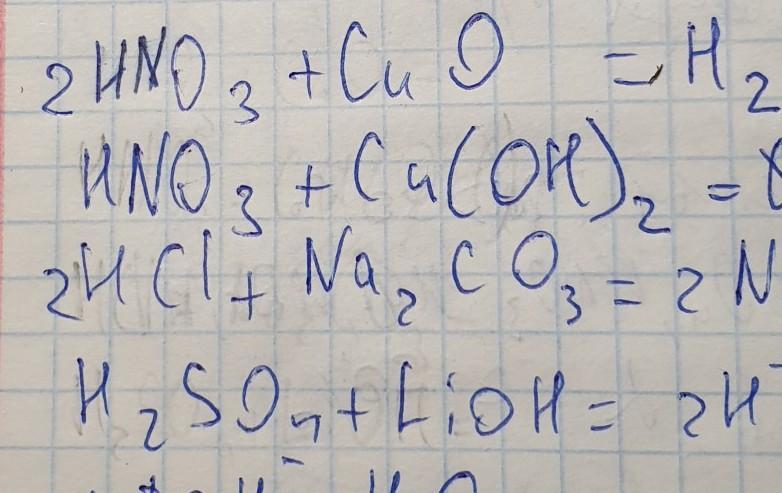 2HNO3 + CuO = H2
HNO3 + Cu(OH)2 =
2HCl + Na2CO3 = 2N
H2SO4 + LiOH = 2H